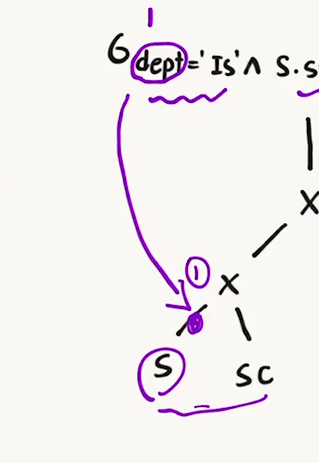 1
σ dept='Is' ∧ S.s
X
① X
S SC